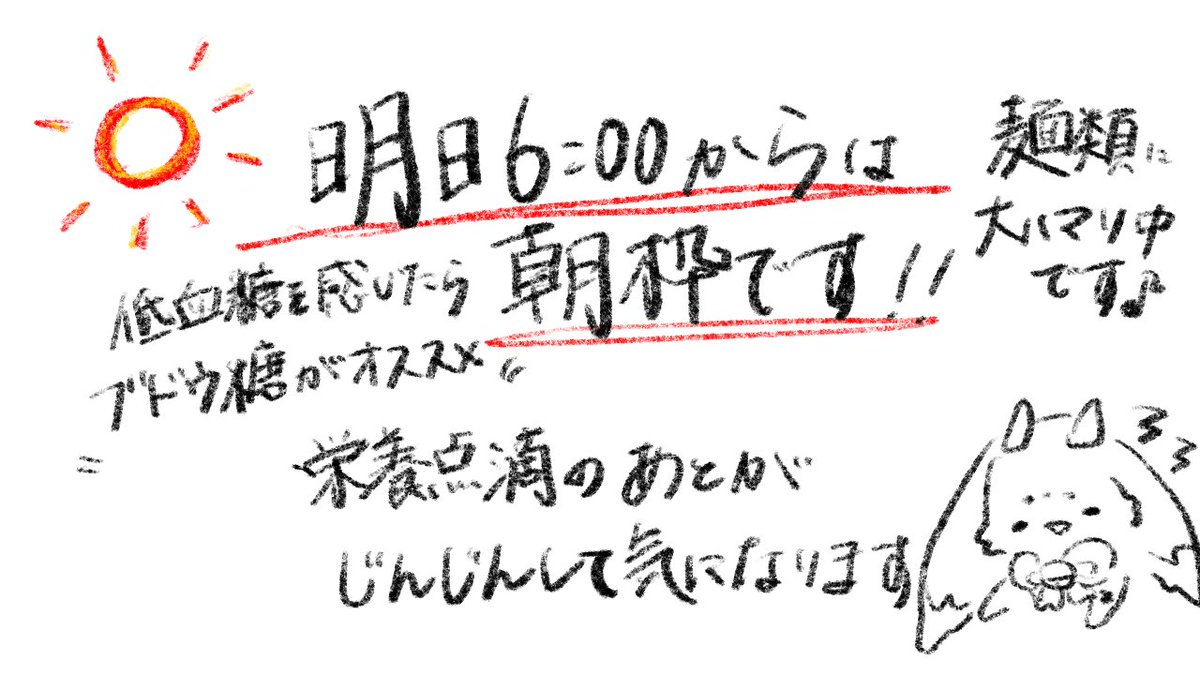 明日6:00からは
朝枠です!!
麺類に
大ハマり中
です♪
低血糖を感じたら
ブドウ糖がオススメ
栄養点滴のあとが
じんじんして気になります